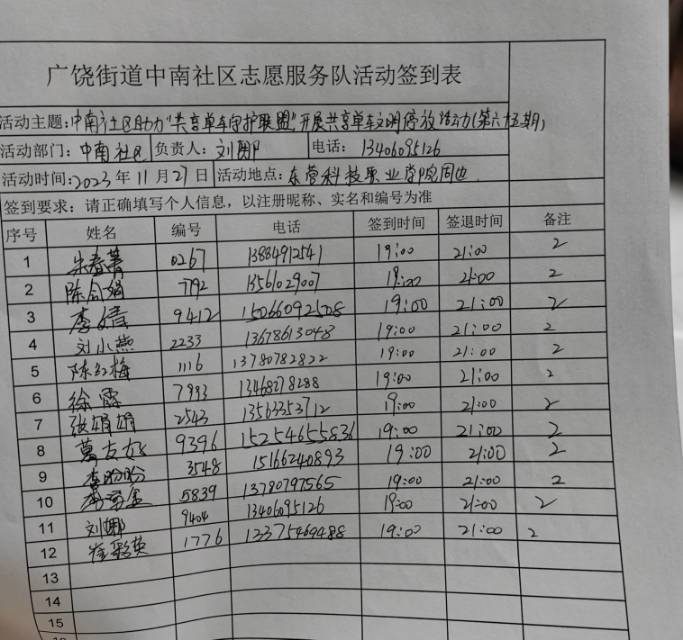 广饶街道中南社区志愿服务队活动签到表
活动主题:中南社区助力"共享单车守护联盟"开展共享单车文明停放活动(第六十五期)
活动部门:中南社区 负责人:刘娜 电话:13406095126
活动时间:2023年11月27日 活动地点:东营科技职业学院周边
签到要求:请正确填写个人信息,以注册昵称、实名和编号为准
序号 姓名 编号 电话 签到时间 签退时间 备注
1 朱春菁 0267 13884912541 19:00 21:00 2
2 陈会娟 7792 13561029007 19:00 21:00 2
3 李婧 9412 15066092508 19:00 21:00 2
4 刘小燕 2233 13678613048 19:00 21:00 2
5 陈红梅 1116 13780782822 19:00 21:00 2
6 徐霞 7993 13468278288 19:00 21:00 2
7 张娟娟 2543 13563353712 19:00 21:00 2
8 葛友好 9396 15254655836 19:00 21:00 2
9 李盼盼 3548 15166240893 19:00 21:00 2
10 5839 13780797565 19:00 21:00 2
11 刘娜 9404 13406095126 19:00 21:00 2
12 徐彩英 1776 19:00 21:00 2
13
14
15